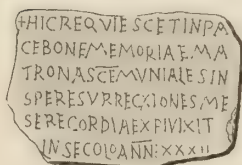 +HICREQVIESCETINPA
CEBONEMEMORIAE.MA
TRONASCEMVNIALESIN
SPERESVRRECXIONES.ME
SERECORDIAEXPIVIXIT
INSECOLOANN:XXXII